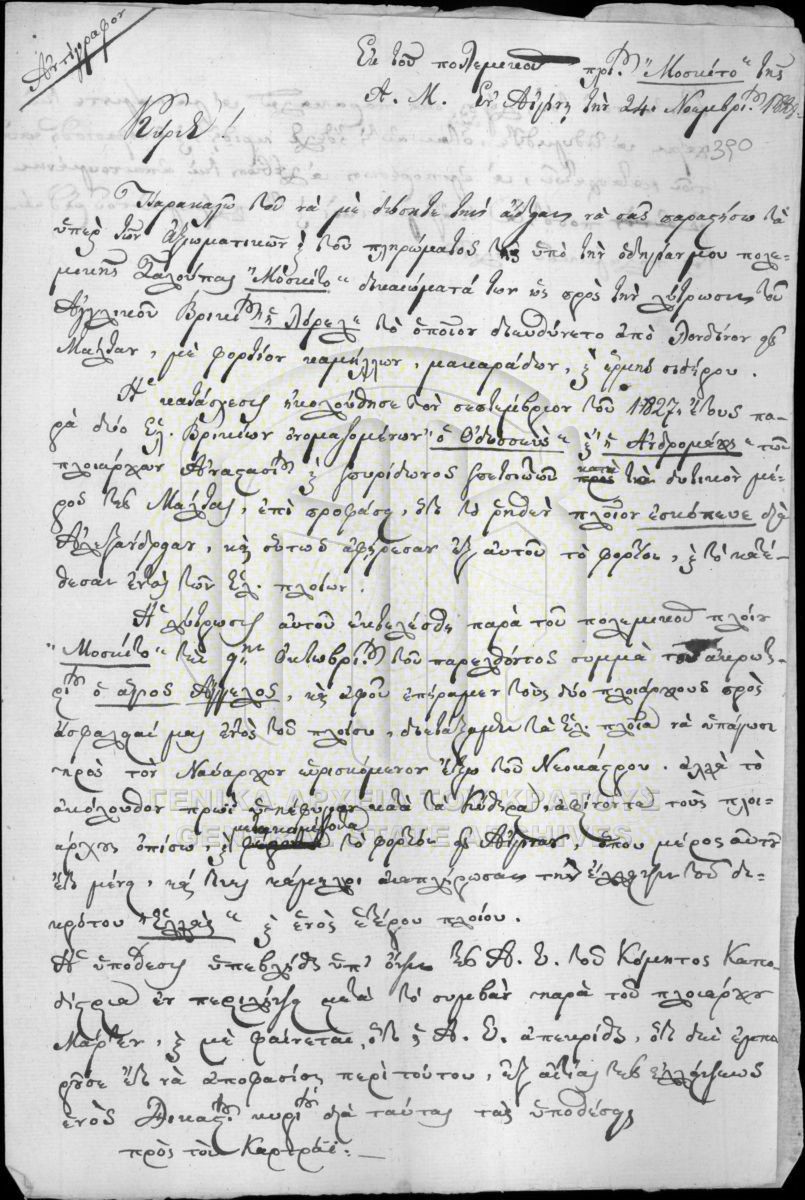 Ἀντίγραφον
Ἐκ τοῦ πολεμικοῦ πλοί. "Μοσκέτο" τῆς
Α. Μ. ἐν Αἰγίνῃ τὴν 24 Νοεμβρί. 1828.
390
Κύριε!
Παρακαλῶ σου νὰ μὲ δώσητε τὴν ἄδειαν νὰ σᾶς παραστήσω τὰ
ὑπὲρ τῶν ἀξιωματικῶν καὶ τοῦ πληρώματος τῆς ὑπὸ τὴν ὁδηγίαν μου πολε-
μικῆς Σαλούπας "Μοσκέτο" δικαιώματά των ὡς πρὸς τὴν λύτρωσιν τοῦ
Ἀγγλικοῦ Βρικί. ἡ Λόρελ" τὸ ὁποῖον διευθύνετο ἀπὸ Λονδίνον εἰς
Μάλταν, μὲ φορτίον καμήλων, μακαράδων, καὶ σιδήρου.
Ἡ κατάσχεσις ἠκολούθησε τὸν σεπτέμβριον τοῦ 1827. ἔτους πα-
ρὰ δύο Ἑλ. Βρικίων ὀνομαζομένων "ὁ Ὀδυσσεὺς" καὶ "ὁ Ἀνδρομάχης" τῶν
πλοιάρχων Ἀναστασί. καὶ Σπυρίδωνος Σπετσιώτων κατὰ τὸ δυτικὸν μέ-
ρος τῆς Μάλτας, ἐπὶ προφάσει, ὅτι τὸ ῥηθὲν πλοῖον ἐσκόπευε διὰ
Ἀλεξάνδρειαν, καὶ οὕτως ἀφῄρεσαν ἐξ αὐτοῦ τὸ φορτίον, καὶ τὸ κατέ-
θεσαν ἐντὸς τῶν Ἑλ. πλοίων.
Ἡ λύτρωσις αὐτοῦ ἐκτελέσθη παρὰ τοῦ πολεμικοῦ πλοίου
"Μοσκέτο" τῇ 9ην Ὀκτωβρί. τοῦ παρελθόντος σιμμὰ τοῦ ἀκρωτη-
ρί. ὁ ἅγιος Ἄγγελος, καὶ ἀφοῦ ἐπήραμεν τοὺς δύο πλοιάρχους πρὸς
ἀσφάλειάν μας ἐντὸς τοῦ πλοίου, διετάξαμεν τὰ Ἑλ. πλοῖα νὰ ὑπάγωσι
πρὸς τὸν Ναύαρχον εὑρισκόμενον ἔξω τοῦ Νεοκάστρου. ἀλλὰ τὸ
ἀκόλουθον πρωῒ κατὰ τὰ Κύθηρα, ἀφίνοντα τοὺς πλοι-
άρχους ὀπίσω, καὶ μετακομίζοντα τὸ φορτίον εἰς Αἴγιναν ὅπου μέρος αὐτοῦ
ἔτι μένει, καί τινες κάμηλοι ἀνεπλήρωσαν τὴν ἔλλειψιν τοῦ δι-
κρότου "Ἑλλὰς" καὶ ἑνὸς ἑτέρου πλοίου.
Ἡ ὑπόθεσις ὑπεβλήθη ὑπ' ὄψιν τῆς Α. Ε. τοῦ Κόμητος Καπο-
δίστρια ἐν περιλήψει μετὰ τὸ συμβὰν παρὰ τοῦ πλοιάρχου
Μάρτιν, καὶ μὲ φαίνεται, ὅτι ἡ Α. Ε. ἀπεκρίθη, ὅτι δὲν ἐμπο-
ροῦσε ἔτι νὰ ἀποφασίσῃ περὶ τούτου, ἐξ αἰτίας τῆς ἐλλείψεως
ἑνὸς Δικαστ. κυρί. διὰ ταύτας τὰς ὑποθέσεις
πρὸς τὸν Καρτράϊ:
ΓΕΝΙΚΑ ΑΡΧΕΙΑ ΤΟΥ ΚΡΑΤΟΥΣ
GENERAL STATE ARCHIVES